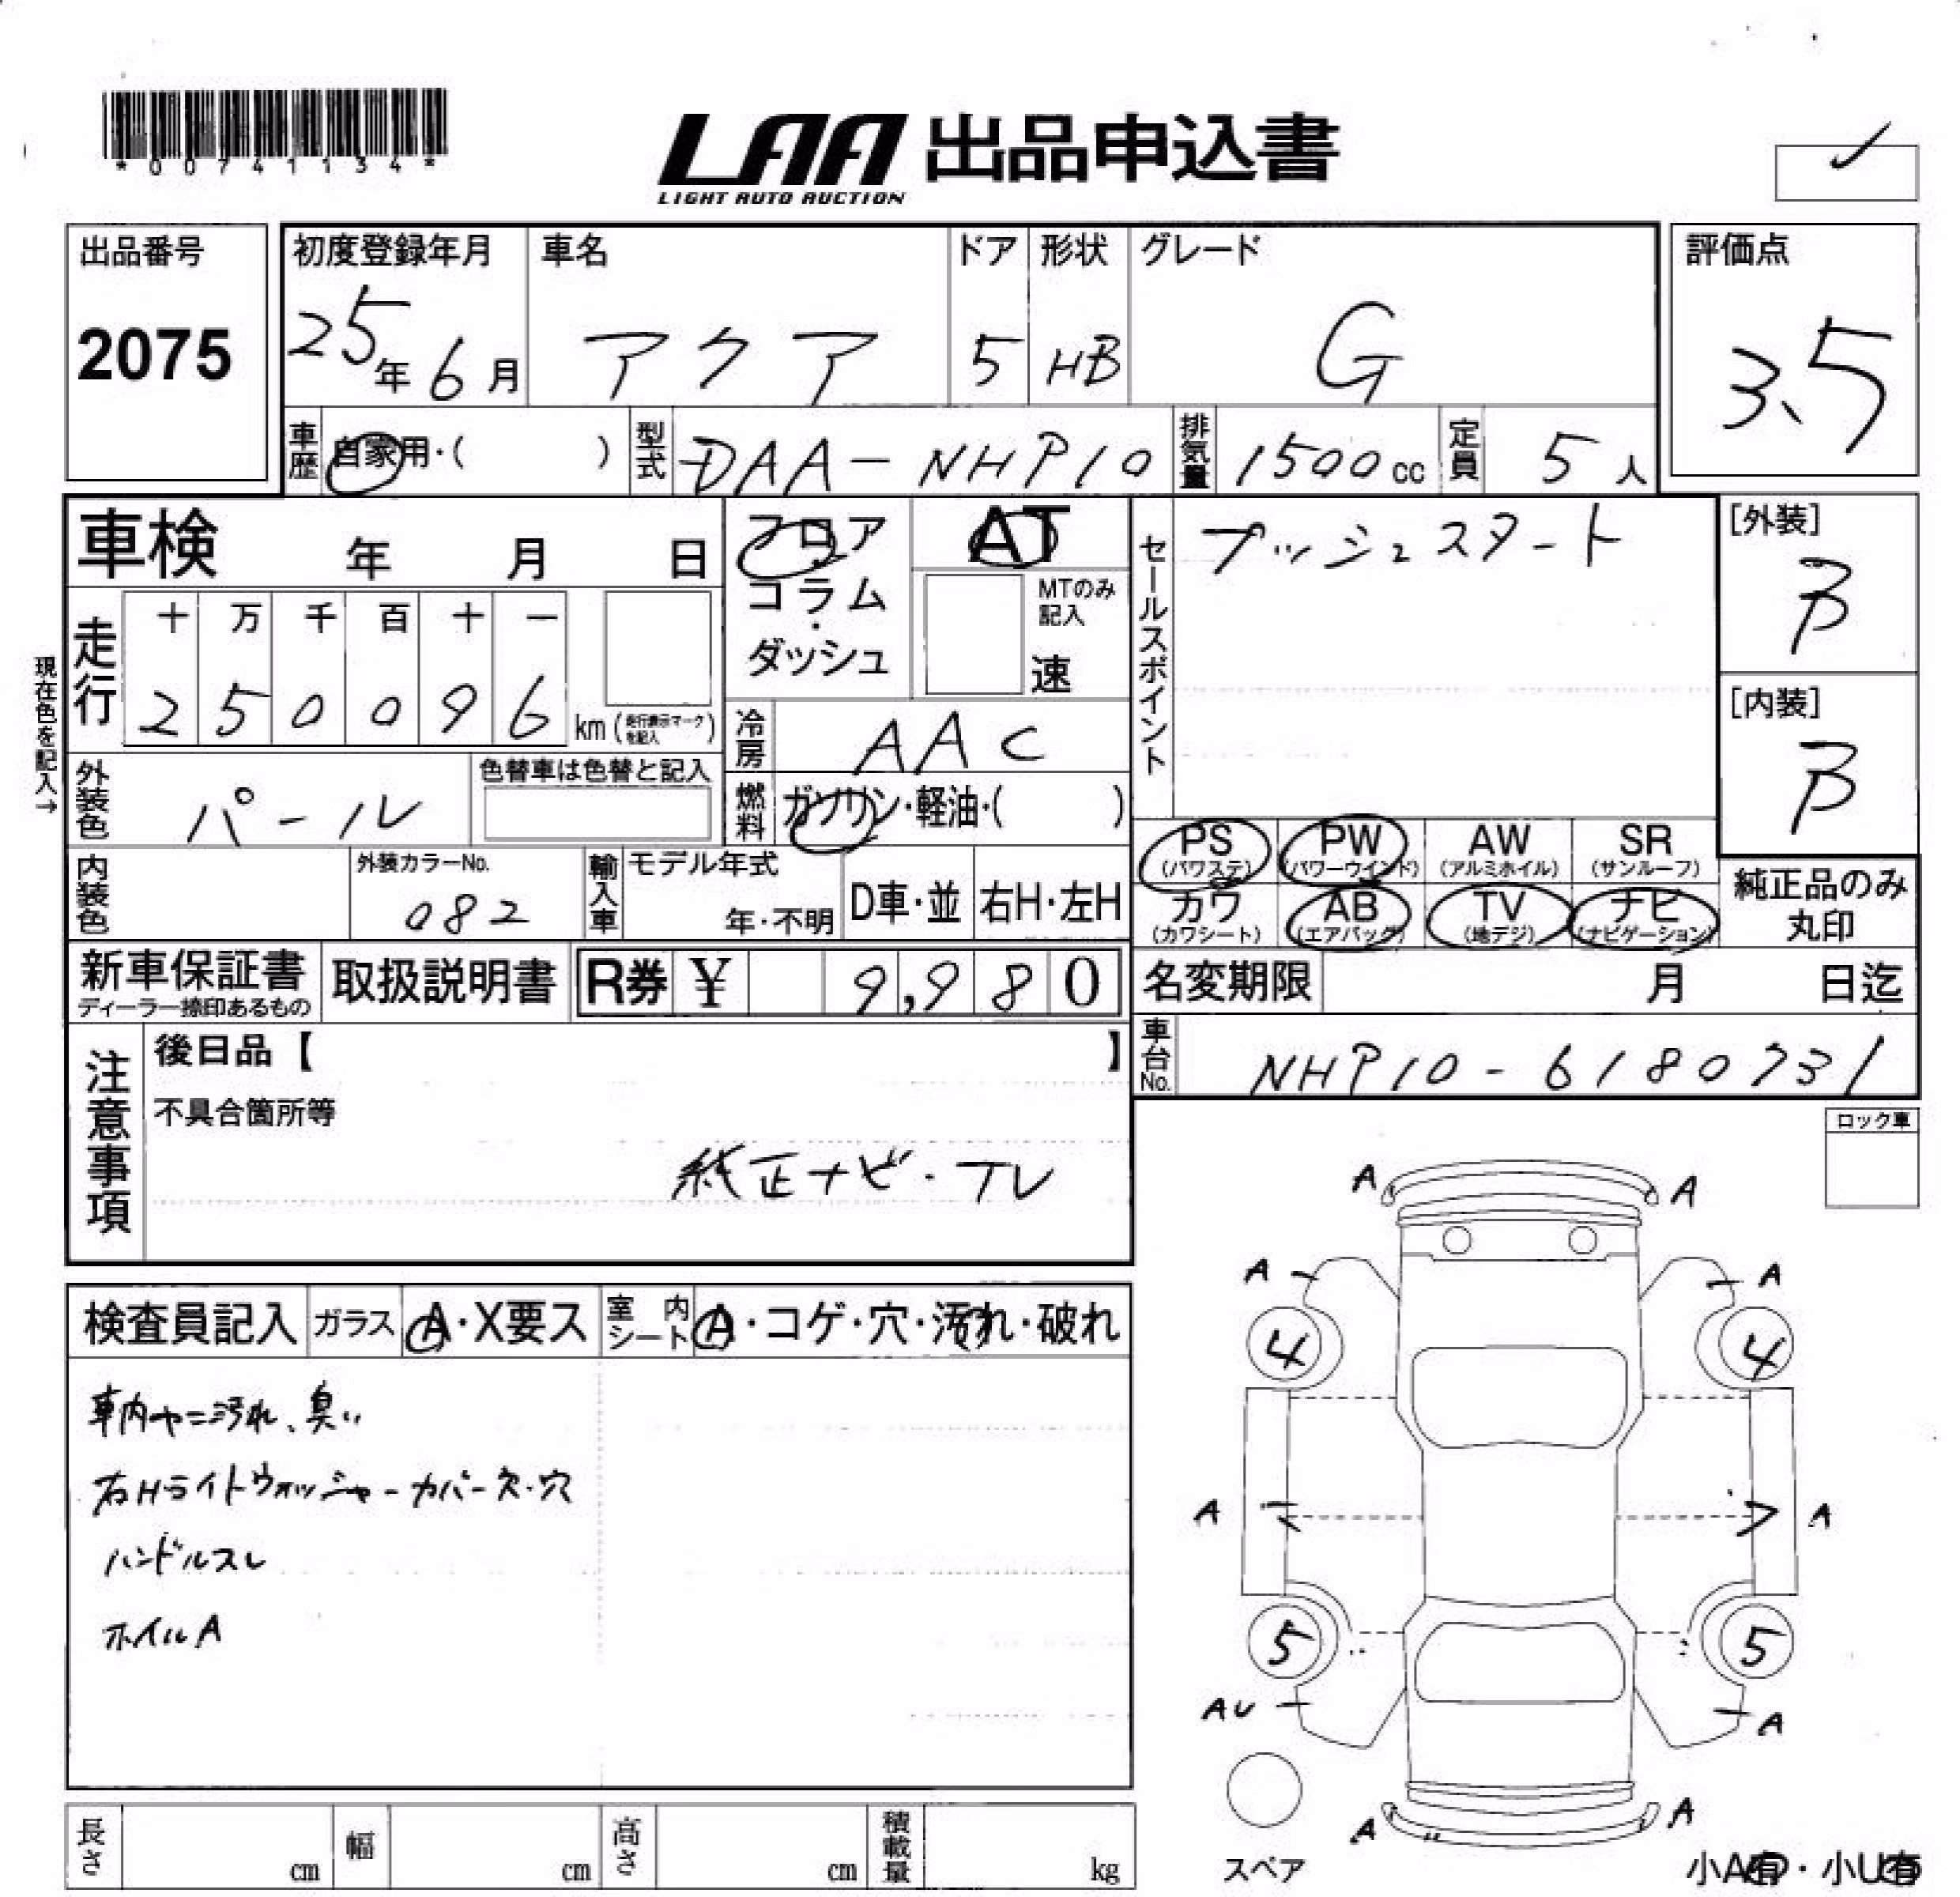 *00741134*
LAA 出品申込書
LIGHT AUTO AUCTION
出品番号
2075
初度登録年月
25年6月
車名
アクア
ドア
5
形状
HB
グレード
G
評価点
3.5
車歴
自家用・( )
型式
DAA-NHP10
排気量
1500cc
定員
5人
車検 年 月 日
フロア
コラム
・
ダッシュ
AT
MTのみ
記入
速
セールスポイント
プッシュスタート
[外装]
B
[内装]
B
現在色を記入→
走行
十 万 千 百 十 一
2 5 0 0 9 6
km(走行表示マークを記入)
冷房
AAC
外装色
パール
色替車は色替と記入
燃料
ガソリン・軽油・( )
PS
(パワステ)
PW
(パワーウインド)
AW
(アルミホイル)
SR
(サンルーフ)
カワ
(カワシート)
AB
(エアバッグ)
TV
(地デジ)
ナビ
(ナビゲーション)
純正品のみ
丸印
内装色
外装カラーNo.
082
輸入車
モデル年式
年・不明
D車・並
右H・左H
新車保証書
ディーラー捺印あるもの
取扱説明書
R券 ¥ 9,980
名変期限 月 日迄
車台No.
NHP10-6180731
注意事項
後日品【 】
不具合箇所等
純正ナビ・TV
ロック車
検査員記入
ガラス
A・X要ス
室内シート
A・コゲ・穴・汚れ・破れ
車内ヤニ汚れ、臭い
右Hライトウォッシャーカバー欠・穴
ハンドルスレ
ホイルA
A A
A A
4 4
A A
5 5
AU A
A A
スペア
小A有・小U有
長さ cm
幅 cm
高さ cm
積載量 kg